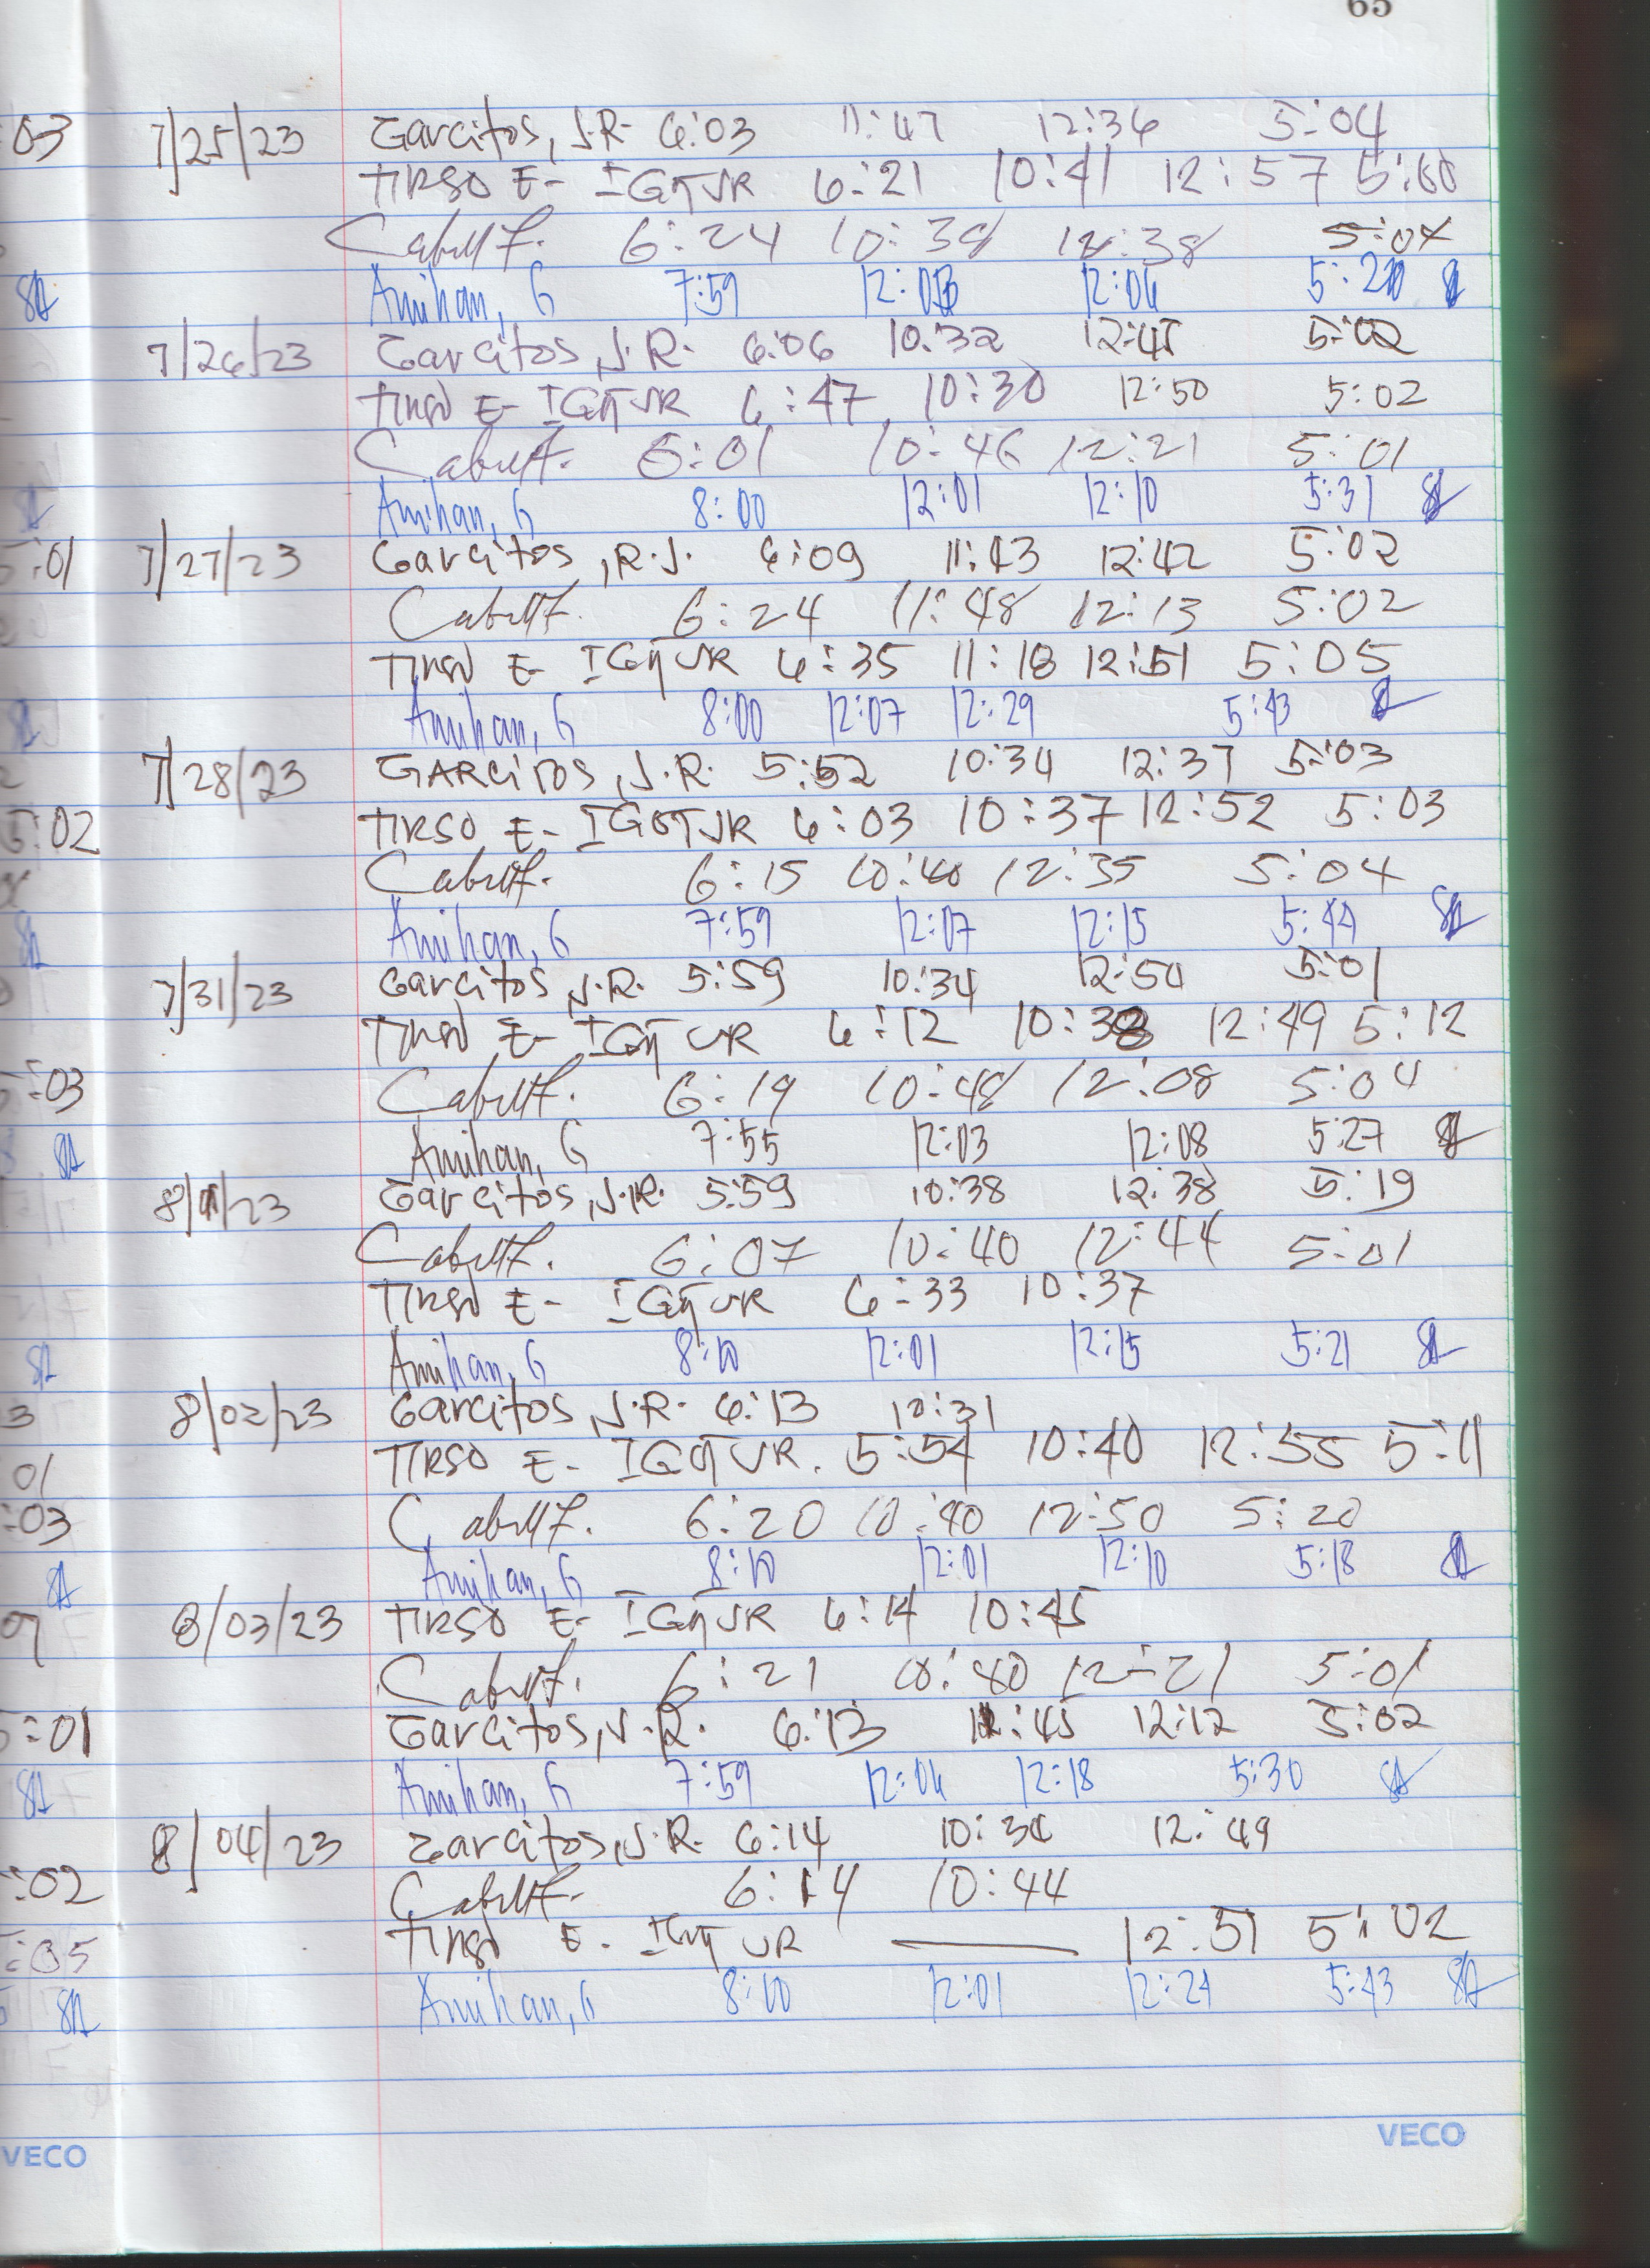 65
03 7/25/23 Garcitos, J.R. 6:03 11:47 12:36 5:04
TIRSO E- IGOT JR 6:21 10:41 12:57 5:00
Cabull F. 6:24 10:38 12:38 5:04
Amihan, G 7:59 12:03 12:06 5:20
7/26/23 Garcitos, J.R. 6:06 10:32 12:45 5:02
TIRSO E- IGOT JR 6:47 10:30 12:50 5:02
6:01 10:46 12:21 5:01
Amihan, G 8:00 12:01 12:10 5:31
:01 7/27/23 Garcitos, R.J. 6:09 11:43 12:42 5:02
6:24 11:48 12:13 5:02
TIRSO E- IGOT JR 6:35 11:18 12:51 5:05
Amihan, G 8:00 12:07 12:29 5:43
7/28/23 GARCITOS, J.R. 5:52 10:34 12:37 5:03
:02 TIRSO E- IGOT JR 6:03 10:37 12:52 5:03
6:15 10:40 12:35 5:04
Amihan, G 7:59 12:07 12:15 5:44
7/31/23 Garcitos, J.R. 5:59 10:34 12:50 5:01
TIRSO E- IGOT JR 6:12 10:38 12:49 5:12
:03 6:19 10:48 12:08 5:04
Amihan, G 7:55 12:03 12:08 5:27
8/1/23 Garcitos, J.R. 5:59 10:38 12:38 5:19
6:07 10:40 12:44 5:01
TIRSO E- IGOT JR 6:33 10:37
Amihan, G 8:10 12:01 12:15 5:21
3 8/02/23 Garcitos, J.R. 6:13 10:31
01 TIRSO E- IGOT JR. 5:54 10:40 12:55 5:11
:03 6:20 10:40 12:50 5:20
Amihan, G 8:10 12:01 12:10 5:18
8/03/23 TIRSO E- IGOT JR 6:14 10:45
6:21 10:40 12:21 5:01
:01 Garcitos, J.R. 6:13 11:45 12:12 5:02
Amihan, G 7:59 12:06 12:18 5:30
8/04/23 Garcitos, J.R. 6:14 10:34 12:49
:02 6:14 10:44
:05 TIRSO E. IGOT JR 12:51 5:02
Amihan, G 8:10 12:01 12:24 5:43
VECO VECO